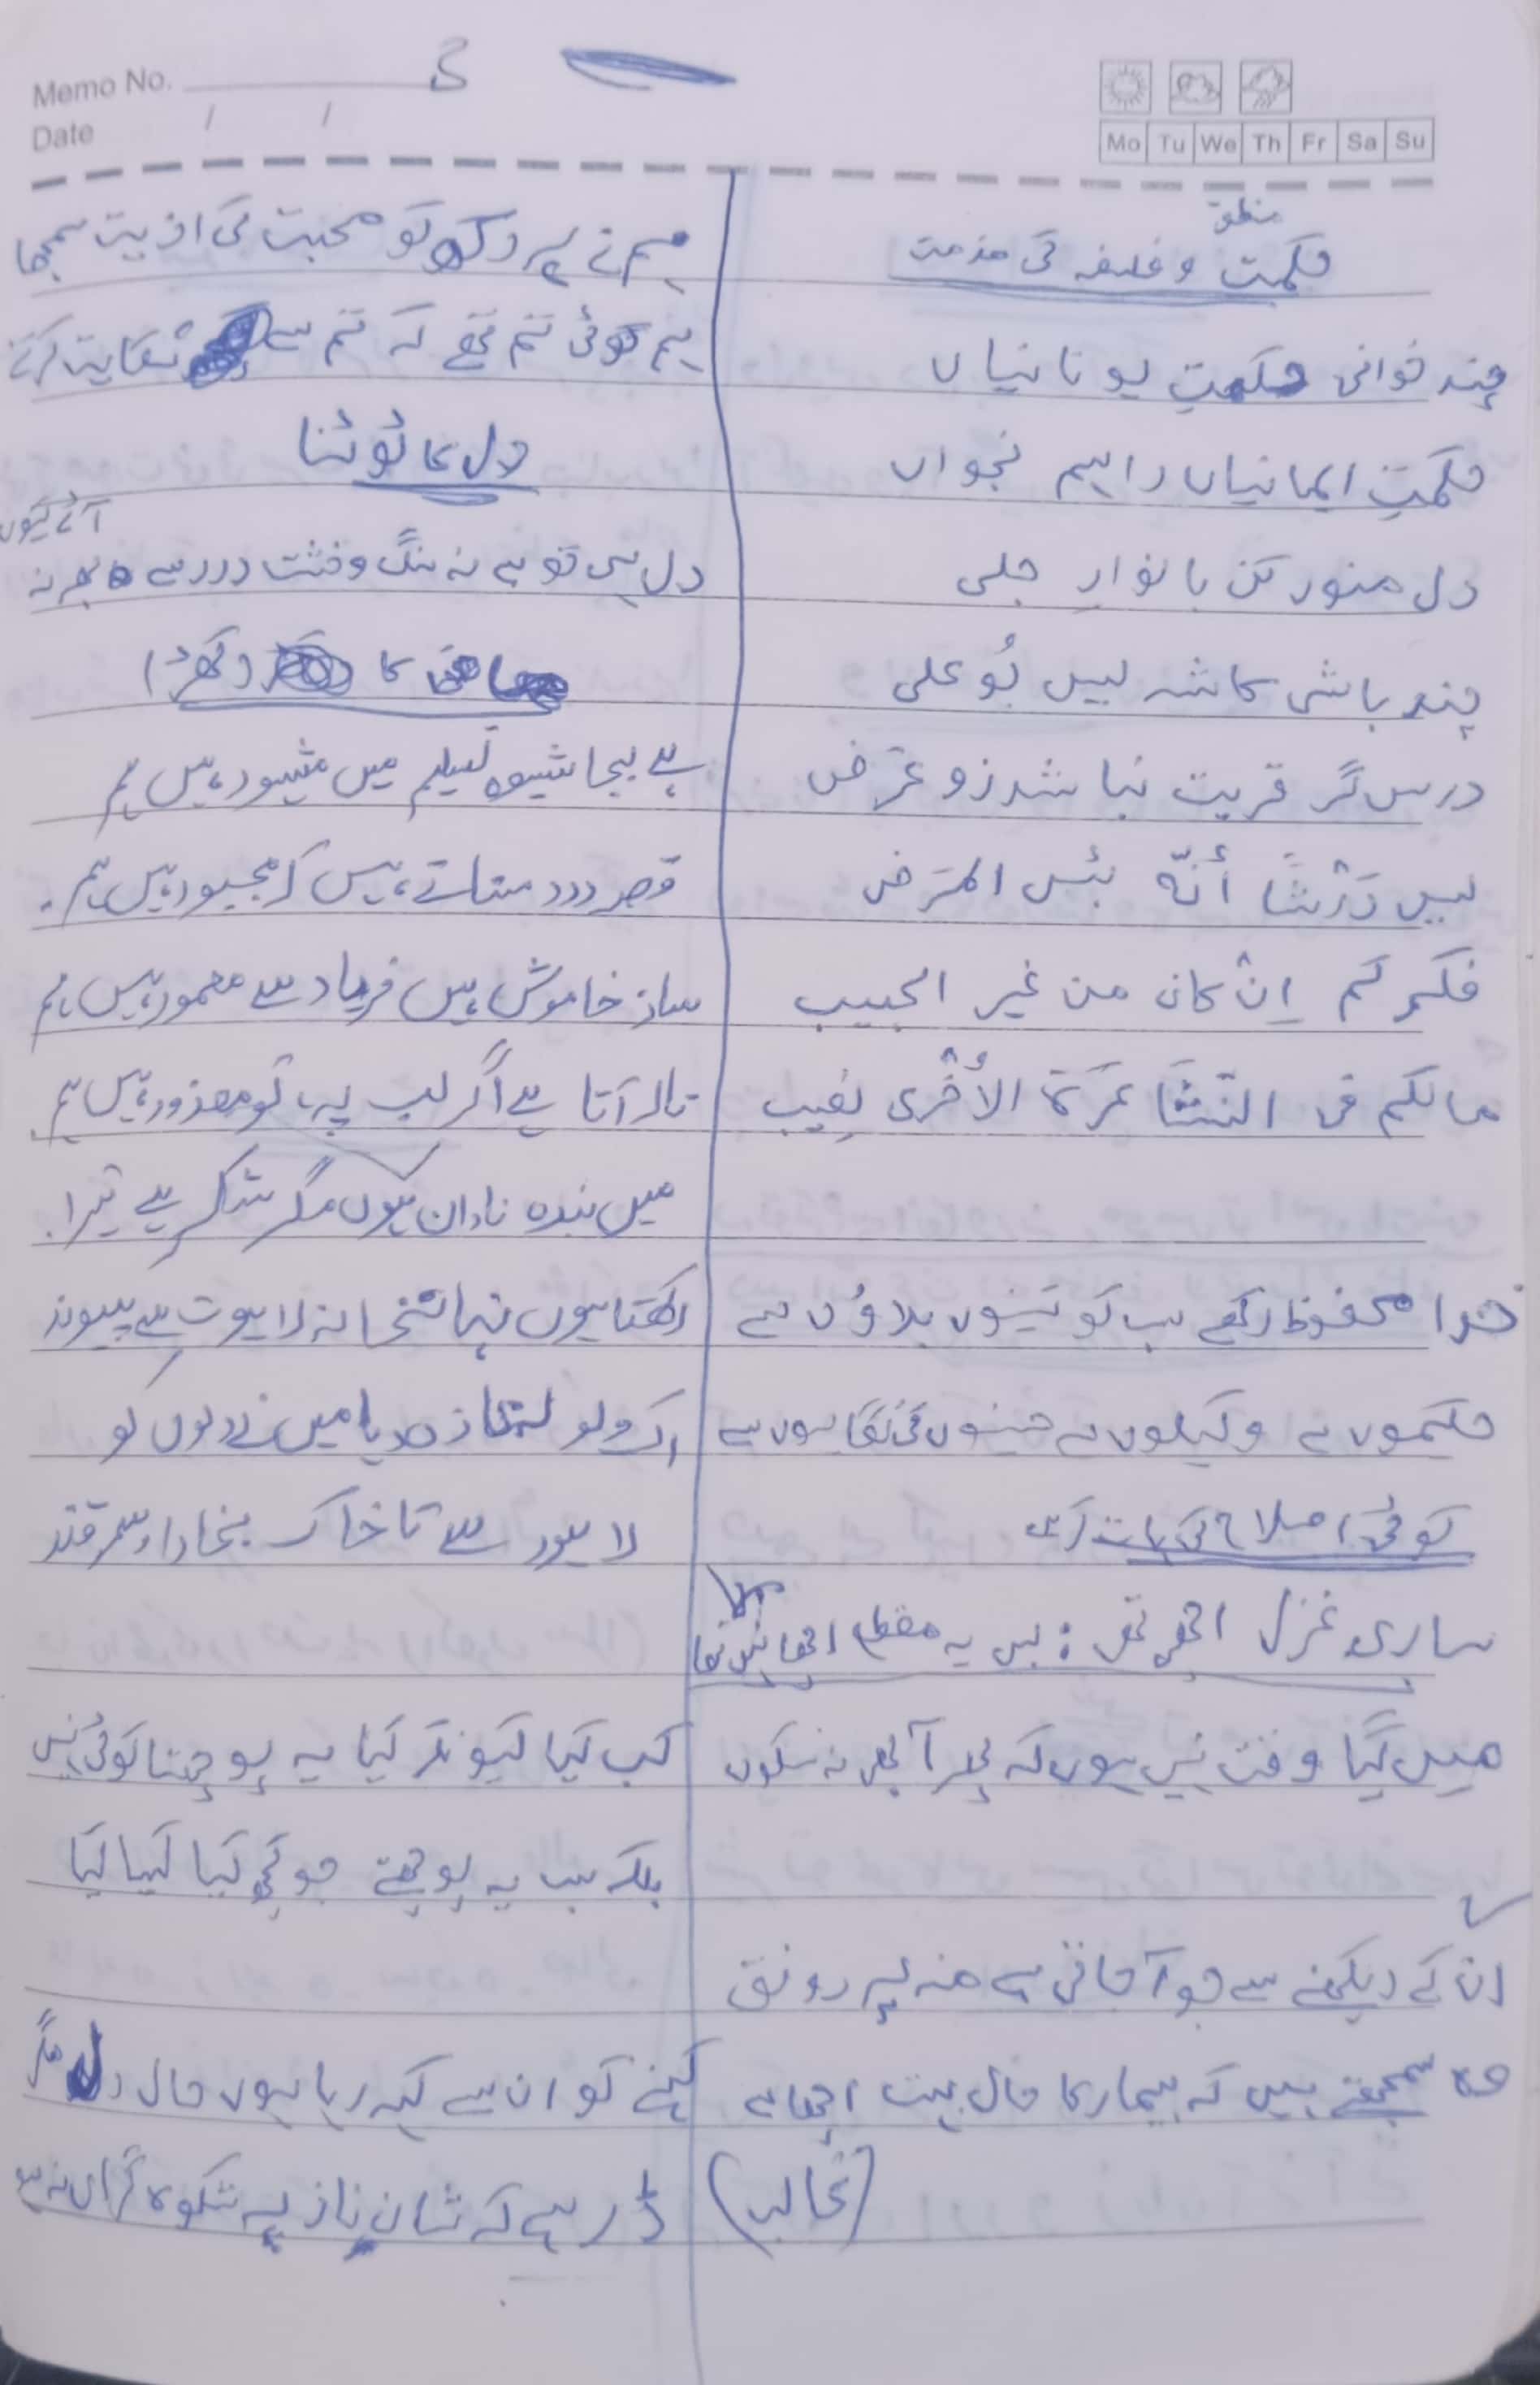 Memo No.
Date / /
Mo Tu We Th Fr Sa Su
منطق
حکمت و فلسفہ کی مذمت
چند خوانی حکمتِ یونانیاں
حکمتِ ایمانیاں را ہم بخواں
دل منور کن بانوارِ جلی
چند باشی کاسہ لیس بُو علی
درس گر قربت نباشد زو غرض
لیس دَرْسًا أنّہ بئس المَرَض
فکرکم اِنْ کان من غیر الحبیب
مالکم فی النشأۃ الأُخْرٰی نصیب
خدا محفوظ رکھے سب کو تینوں بلاؤں سے
حکیموں سے وکیلوں سے حسینوں کی نگاہوں سے
کوئی اصلاح کی بات کرے
ساری غزل اچھی تھی: بس یہ مقطع اچھا نہیں تھا
میں گیا وقت نہیں ہوں کہ پھر آ بھی نہ سکوں
ان کے دیکھنے سے جو آ جاتی ہے منہ پر رونق
وہ سمجھتے ہیں کہ بیمار کا حال بہت اچھا ہے
(غالب)
ہم نے ہر دکھ کو محبت کی اذیت سمجھا
ہم کوئی تم تھے کہ تم سے شکایت کرتے
دل کا ٹوٹنا
دل ہی تو ہے نہ سنگ و خشت درد سے بھر نہ
آئے کیوں
کا دکھڑا
ہے بجا شیوہ تسلیم میں مشہور ہیں ہم
قصہ درد سناتے ہیں کہ مجبور ہیں ہم
ساز خاموش ہیں فریاد سے معمور ہیں ہم
نالہ آتا ہے اگر لب پہ، تو معذور ہیں ہم
میں بندہ نادان ہوں مگر شکر ہے تیرا
رکھتا ہوں نہانخانہ لاہوت سے پیوند
اک ولولہ تازہ دیا میں نے دلوں کو
لاہور سے تا خاک بخارا و سمرقند
کب کیا کیونکر کیا یہ پوچھتا کوئی نہیں
بلکہ سب یہ پوچھتے جو کچھ کیا کیسا کیا
کہنے کو ان سے کہہ رہا ہوں حال دل مگر
ڈر ہے کہ شانِ ناز پہ شکوہ گراں نہ ہو